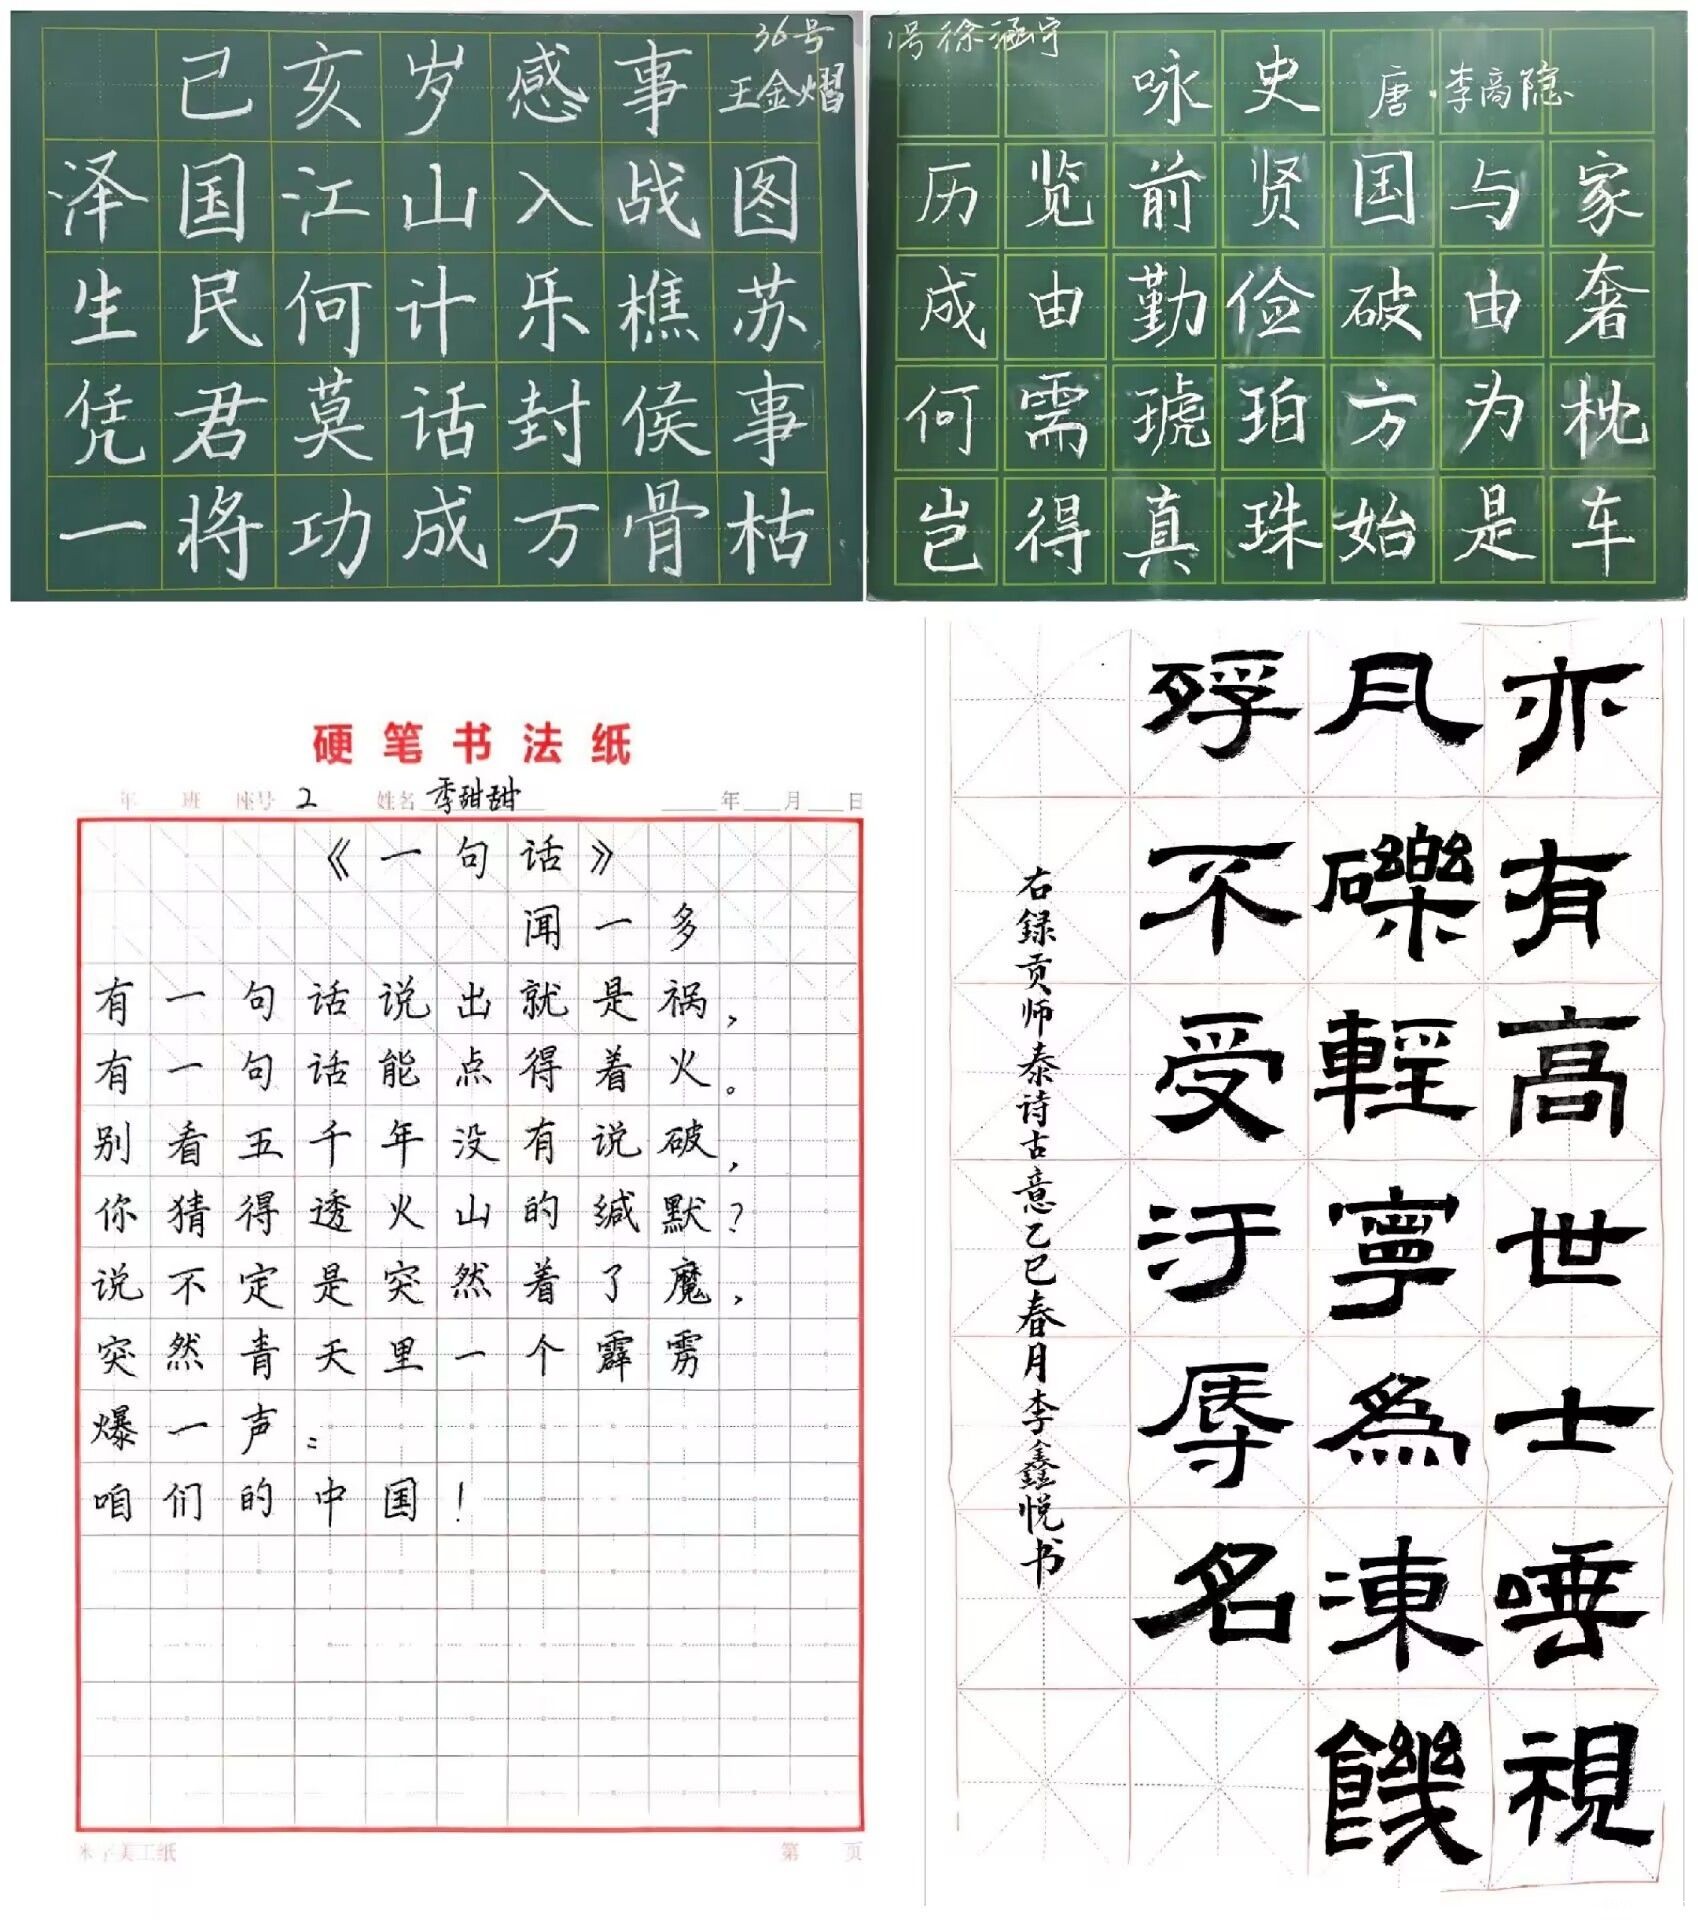 36号
己亥岁感事 王金熠
泽国江山入战图
生民何计乐樵苏
凭君莫话封侯事
一将功成万骨枯
1号徐涵宇
咏史 唐·李商隐
历览前贤国与家
成由勤俭破由奢
何需琥珀方为枕
岂得真珠始是车
硬笔书法纸
年 班 座号 2 姓名 季甜甜 年 月 日
《一句话》
闻一多
有一句话说出就是祸，
有一句话能点得着火。
别看五千年没有说破，
你猜得透火山的缄默？
说不定是突然着了魔，
突然青天里一个霹雳
爆一声：
咱们的中国！
米字美工纸 第 页
亦有高世士唾視
瓦礫輕寧為凍饑
殍不受汙辱名
右録贡师泰诗古意乙巳春月李鑫悦书